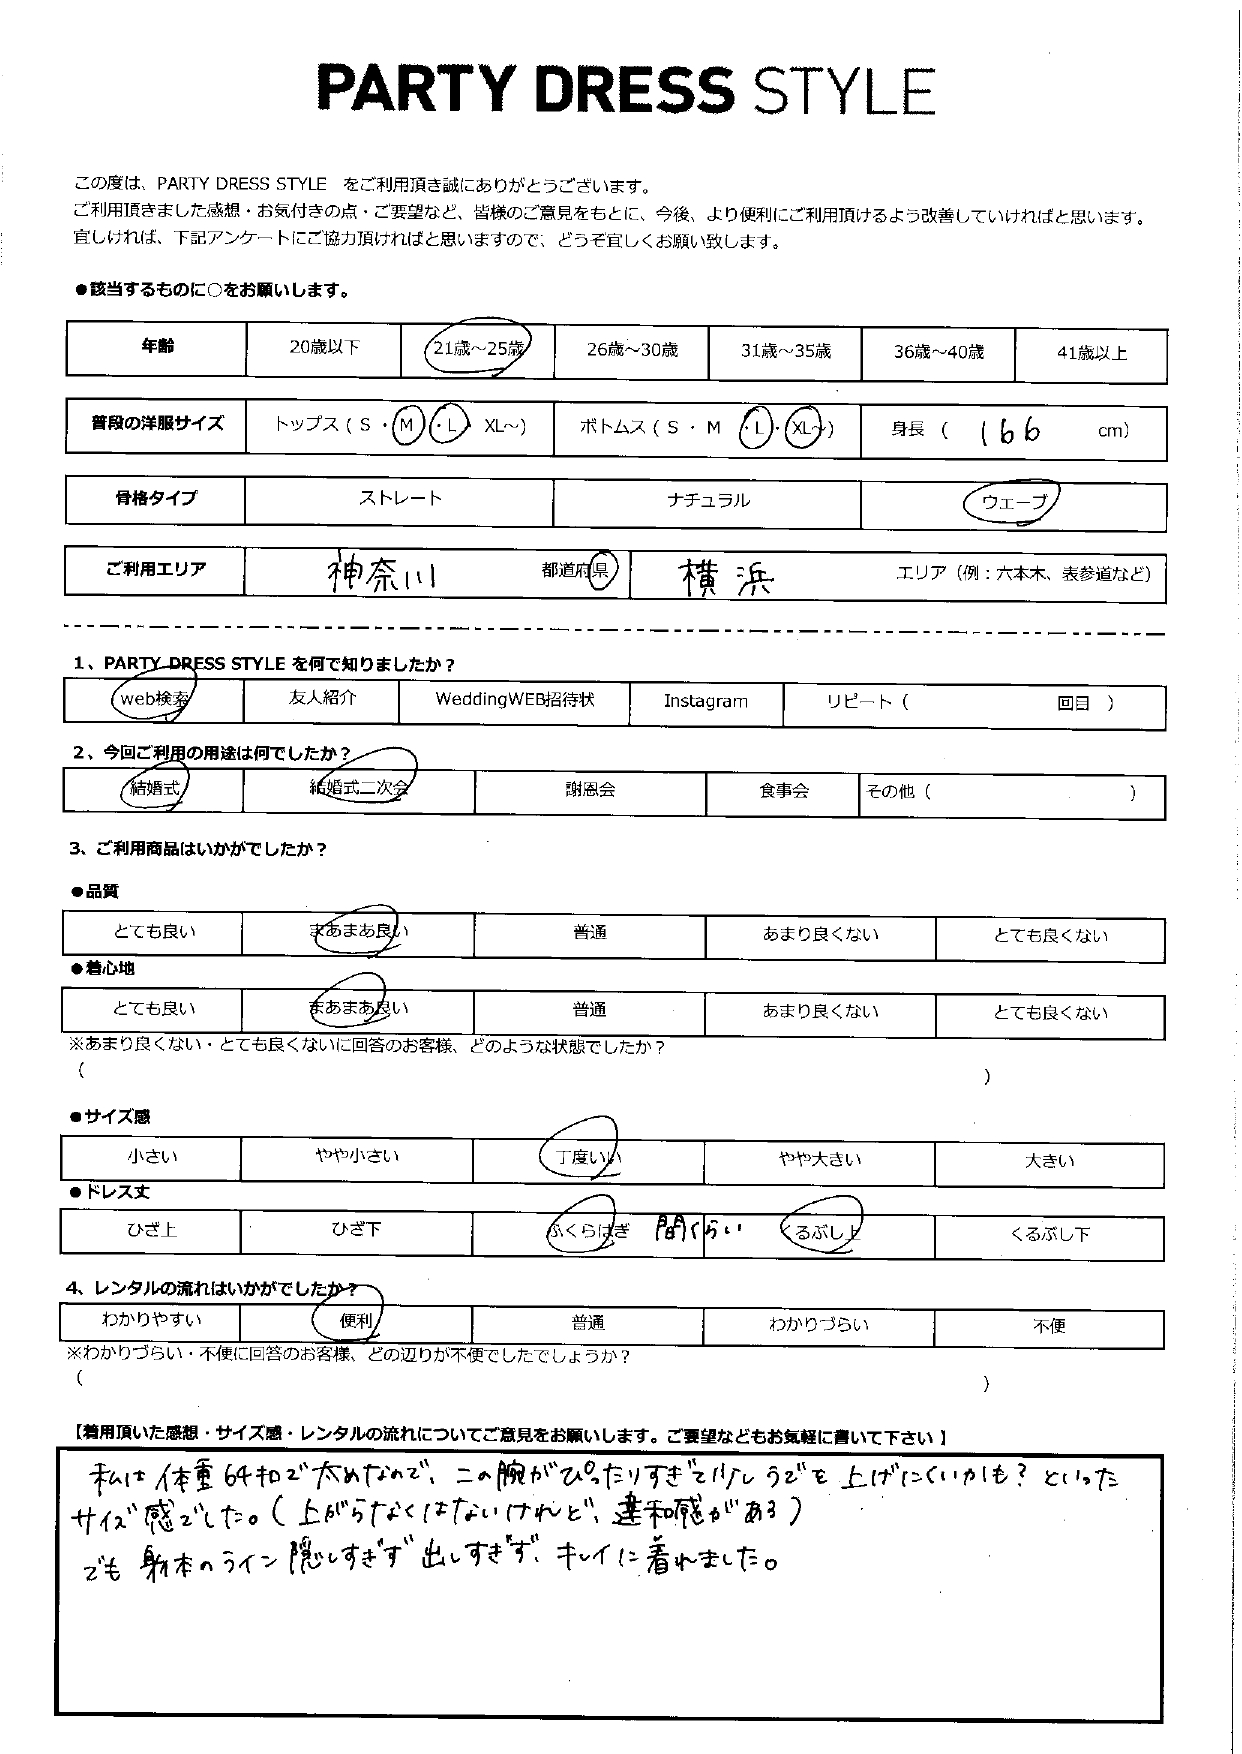 PARTY DRESS STYLE
この度は、PARTY DRESS STYLE をご利用頂き誠にありがとうございます。
ご利用頂きました感想・お気付きの点・ご要望など、皆様のご意見をもとに、今後、より便利にご利用頂けるよう改善していければと思います。
宜しければ、下記アンケートにご協力頂ければと思いますので、どうぞ宜しくお願い致します。
●該当するものに○をお願いします。
年齢 20歳以下 21歳～25歳 26歳～30歳 31歳～35歳 36歳～40歳 41歳以上
普段の洋服サイズ トップス ( S ・ M ・ L ・ XL～) ボトムス ( S ・ M ・ L ・ XL～) 身長 ( 166 cm)
骨格タイプ ストレート ナチュラル ウェーブ
ご利用エリア 神奈川 都道府県 横浜 エリア（例：六本木、表参道など）
1、PARTY DRESS STYLE を何で知りましたか？
web検索 友人紹介 WeddingWEB招待状 Instagram リピート（ 回目 ）
2、今回ご利用の用途は何でしたか？
結婚式 結婚式二次会 謝恩会 食事会 その他（ ）
3、ご利用商品はいかがでしたか？
●品質
とても良い まあまあ良い 普通 あまり良くない とても良くない
●着心地
とても良い まあまあ良い 普通 あまり良くない とても良くない
※あまり良くない・とても良くないに回答のお客様、どのような状態でしたか？
（ ）
●サイズ感
小さい やや小さい 丁度いい やや大きい 大きい
●ドレス丈
ひざ上 ひざ下 ふくらはぎ 間くらい くるぶし上 くるぶし下
4、レンタルの流れはいかがでしたか？
わかりやすい 便利 普通 わかりづらい 不便
※わかりづらい・不便に回答のお客様、どの辺りが不便でしたでしょうか？
（ ）
【着用頂いた感想・サイズ感・レンタルの流れについてご意見をお願いします。ご要望などもお気軽に書いて下さい】
私は体重64キロで太めなので、二の腕がぴったりすぎて少しうでを上げにくいかも？といった
サイズ感でした。（上がらなくはないけれど、違和感がある）
でも身体のライン隠しすぎず出しすぎず、キレイに着れました。